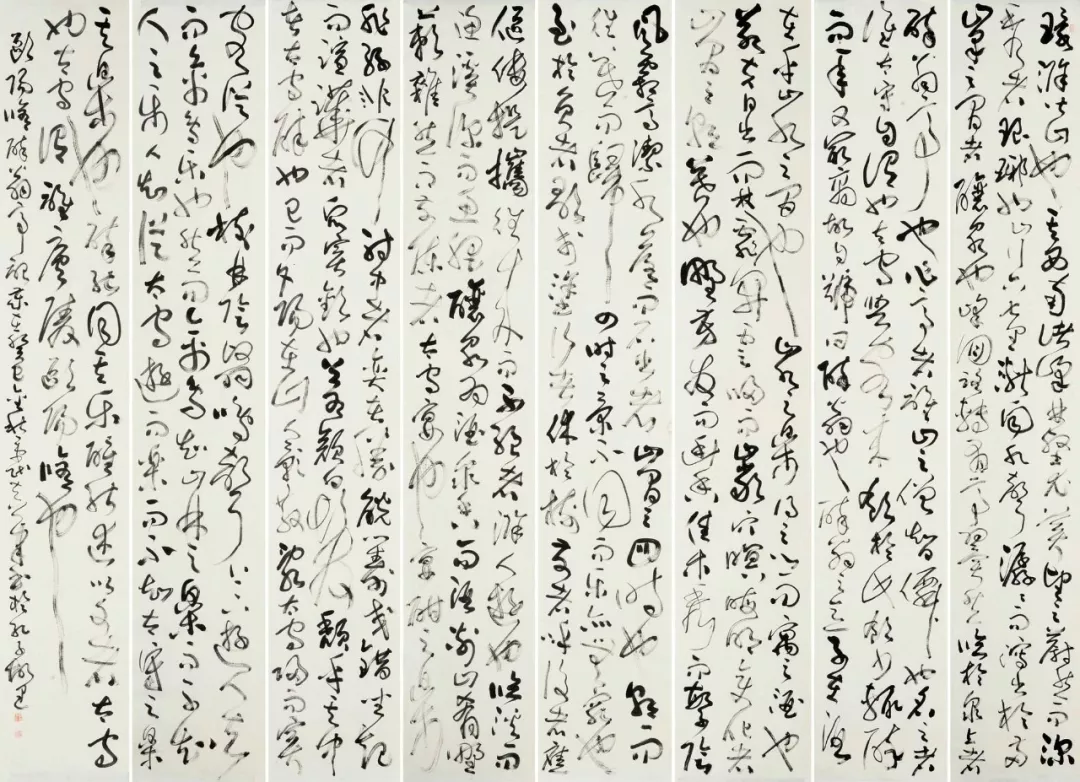 環滁皆山也其西南諸峰林壑尤美望之蔚然而深
秀者琅琊也山行六七里漸聞水聲潺潺而瀉出於兩
峰之間者釀泉也峰回路轉有亭翼然臨於泉上者
醉翁亭也作亭者誰山之僧智僊也名之者
誰太守自謂也太守與客來飲於此飲少輒醉
而年又最高故自號曰醉翁也醉翁之意不在酒
在乎山水之間也山水之樂得之心而寓之酒也
若夫日出而林霏開雲歸而巖穴暝晦明變化者
山間之朝暮也野芳發而幽香佳木秀而繁陰
風霜高潔水落而石出者山間之四時也朝而
往暮而歸四時之景不同而樂亦無窮也
至於負者歌於塗行者休於樹前者呼後者應
傴僂提攜往來而不絕者滁人遊也臨溪而
漁溪深而魚肥釀泉為酒泉香而酒洌山肴野
蔌雜然而前陳者太守宴也宴酣之樂
非絲非竹射者中弈者勝觥籌交錯坐起
而諠譁者眾賓歡也蒼顏白髮頹乎其中
者太守醉也已而夕陽在山人影散亂太守歸而賓
客從也樹林陰翳鳴聲上下遊人去
而禽鳥樂也然而禽鳥知山林之樂而不知
人之樂人知從太守遊而樂而不知太守之樂
其樂也醉能同其樂醒能述以文者太守
也太守謂誰廬陵歐陽脩也
歐陽脩醉翁亭記歲在癸巳